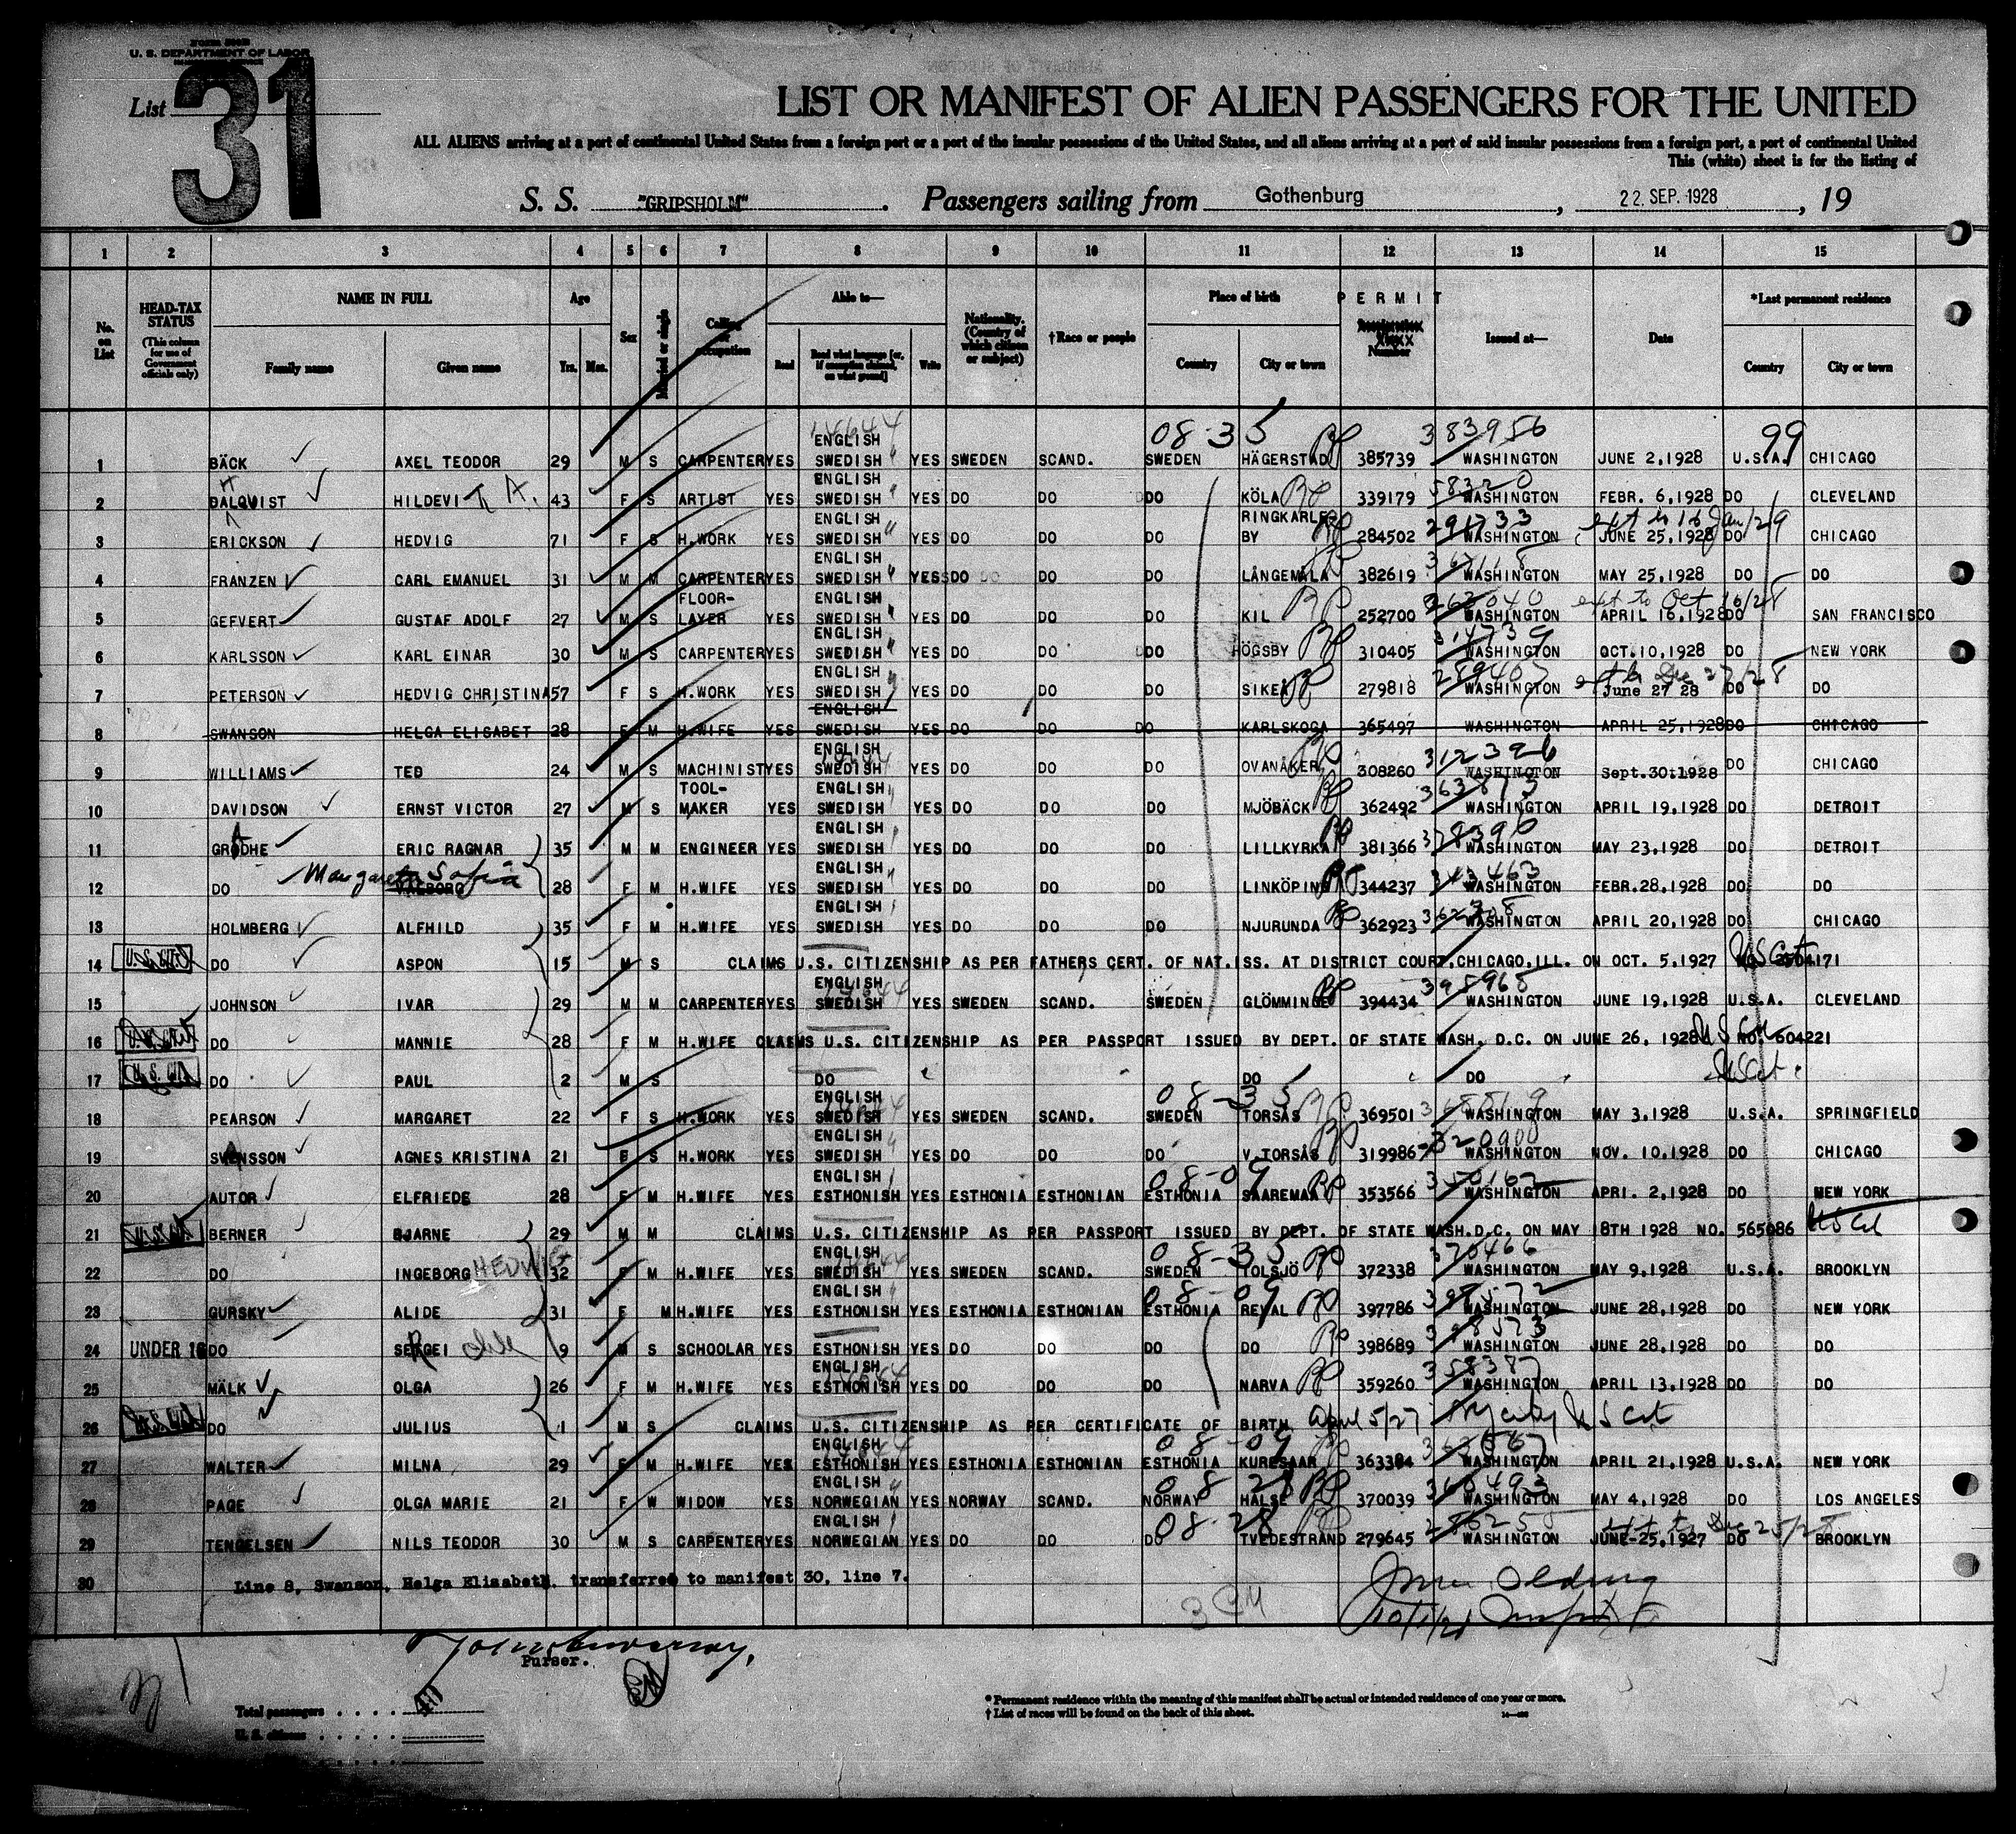 Form 500B
U. S. DEPARTMENT OF LABOR
List 31
LIST OR MANIFEST OF ALIEN PASSENGERS FOR THE UNITED
ALL ALIENS arriving at a port of continental United States from a foreign port or a port of the insular possessions of the United States, and all aliens arriving at a port of said insular possessions from a foreign port, a port of continental United
This (white) sheet is for the listing of
S. S. "GRIPSHOLM". Passengers sailing from Gothenburg, 22 SEP. 1928, 19
1 2 3 4 5 6 7 8 9 10 11 12 13 14 15
No. on List HEAD-TAX STATUS (This column for use of Government officials only) NAME IN FULL Family name Given name Age Yrs. Mos. Sex Married or single Calling or occupation Able to— Read Read what language [or, if exemption claimed, on what ground] Write Nationality. (Country of which citizen or subject) †Race or people Place of birth Country City or town PERMIT Number Issued at— Date *Last permanent residence Country City or town
14644 08-35 383956 99
1 BÄCK AXEL TEODOR 29 M S CARPENTER YES ENGLISH SWEDISH YES SWEDEN SCAND. SWEDEN HÄGERSTAD 385739 WASHINGTON JUNE 2,1928 U.S.A. CHICAGO
2 DALQVIST H HILDEVI T A. 43 F S ARTIST YES ENGLISH SWEDISH YES DO DO DO KÖLA 339179 58320 WASHINGTON FEBR. 6,1928 DO CLEVELAND
3 ERICKSON HEDVIG 71 F S H.WORK YES ENGLISH SWEDISH YES DO DO DO RINGKARLEBY 284502 291733 WASHINGTON ext to 16 Jan/29 JUNE 25,1928 DO CHICAGO
4 FRANZEN CARL EMANUEL 31 M M CARPENTER YES ENGLISH SWEDISH YES DO DO DO LÅNGEMÅLA 382619 WASHINGTON MAY 25,1928 DO DO
5 GEFVERT GUSTAF ADOLF 27 M S FLOOR-LAYER YES ENGLISH SWEDISH YES DO DO DO KIL 252700 263040 WASHINGTON ext to Oct 16/28 APRIL 16,1928 DO SAN FRANCISCO
6 KARLSSON KARL EINAR 30 M S CARPENTER YES ENGLISH SWEDISH YES DO DO DO HÖGSBY 310405 314739 WASHINGTON OCT.10,1928 DO NEW YORK
7 PETERSON HEDVIG CHRISTINA 57 F S H.WORK YES ENGLISH SWEDISH YES DO DO DO SIKEA 279818 289407 WASHINGTON ext to Dec 27/28 June 27 28 DO DO
8 SWANSON HELGA ELISABET 28 F M H.WIFE YES ENGLISH SWEDISH YES DO DO DO KARLSKOGA 365497 WASHINGTON APRIL 25,1928 DO CHICAGO
9 WILLIAMS TED 24 M S MACHINIST YES ENGLISH SWEDISH YES DO DO DO OVANÅKER 308260 312396 WASHINGTON Sept.30:1928 DO CHICAGO
10 DAVIDSON ERNST VICTOR 27 M S TOOL-MAKER YES ENGLISH SWEDISH YES DO DO DO MJÖBÄCK 362492 363873 WASHINGTON APRIL 19,1928 DO DETROIT
11 GRADHE ERIC RAGNAR 35 M M ENGINEER YES ENGLISH SWEDISH YES DO DO DO LILLKYRKA 381366 378390 WASHINGTON MAY 23,1928 DO DETROIT
12 DO Margareta Sofia VALBORG 28 F M H.WIFE YES ENGLISH SWEDISH YES DO DO DO LINKÖPING 344237 343463 WASHINGTON FEBR.28,1928 DO DO
13 HOLMBERG ALFHILD 35 F M H.WIFE YES ENGLISH SWEDISH YES DO DO DO NJURUNDA 362923 362308 WASHINGTON APRIL 20,1928 DO CHICAGO
14 U.S. CIT. DO ASPON 15 M S CLAIMS U.S. CITIZENSHIP AS PER FATHERS CERT. OF NAT.ISS. AT DISTRICT COURT,CHICAGO,ILL. ON OCT. 5,1927 US Cit
15 JOHNSON IVAR 29 M M CARPENTER YES ENGLISH SWEDISH YES SWEDEN SCAND. SWEDEN GLÖMMINGE 394434 395965 WASHINGTON JUNE 19,1928 U.S.A. CLEVELAND
16 U.S. CIT DO MANNIE 28 F M H.WIFE CLAIMS U.S. CITIZENSHIP AS PER PASSPORT ISSUED BY DEPT. OF STATE WASH. D.C. ON JUNE 26, 1928 US Cit NO. 604221
17 U.S. CIT DO PAUL 2 M S DO DO DO US Cit.
18 PEARSON MARGARET 22 F S H.WORK YES ENGLISH SWEDISH YES SWEDEN SCAND. 08-35 SWEDEN TORSÅS 369501 WASHINGTON MAY 3,1928 U.S.A. SPRINGFIELD
19 SVENSSON AGNES KRISTINA 21 F S H.WORK YES ENGLISH SWEDISH YES DO DO DO V.TORSÅS 319986 320900 WASHINGTON NOV. 10,1928 DO CHICAGO
20 AUTOR ELFRIEDE 28 F M H.WIFE YES ENGLISH ESTHONISH YES ESTHONIA ESTHONIAN 08-09 ESTHONIA SAAREMAA 353566 350162 WASHINGTON APRI. 2,1928 DO NEW YORK
21 U.S. CIT BERNER BJARNE 29 M M CLAIMS U.S. CITIZENSHIP AS PER PASSPORT ISSUED BY DEPT. OF STATE WASH.D.C. ON MAY 18TH 1928 NO. 565086 US Cit
22 DO INGEBORG HEDWIG 32 F M H.WIFE YES ENGLISH SWEDISH YES SWEDEN SCAND. 08-35 SWEDEN TOLSJÖ 372338 370466 WASHINGTON MAY 9,1928 U.S.A. BROOKLYN
23 GURSKY ALIDE 31 F M H.WIFE YES ENGLISH ESTHONISH YES ESTHONIA ESTHONIAN 08-09 ESTHONIA REVAL 397786 398572 WASHINGTON JUNE 28,1928 DO NEW YORK
24 UNDER 16 DO SERGEI 9 M S SCHOOLAR YES ESTHONISH YES DO DO DO DO 398689 398573 WASHINGTON JUNE 28,1928 DO DO
25 MÄLK OLGA 26 F M H.WIFE YES ENGLISH ESTHONISH YES DO DO DO NARVA 359260 358387 WASHINGTON APRIL 13,1928 DO DO
26 U.S. CIT DO JULIUS 1 M S CLAIMS U.S. CITIZENSHIP AS PER CERTIFICATE OF BIRTH April 5/27 NY City US Cit
27 WALTER MILNA 29 F M H.WIFE YES ENGLISH ESTHONISH YES ESTHONIA ESTHONIAN 08-09 ESTHONIA KURESAAR 363384 WASHINGTON APRIL 21,1928 U.S.A. NEW YORK
28 PAGE OLGA MARIE 21 F W WIDOW YES ENGLISH NORWEGIAN YES NORWAY SCAND. 08 28 NORWAY HALSE 370039 360493 WASHINGTON MAY 4,1928 DO LOS ANGELES
29 TENGELSEN NILS TEODOR 30 M S CARPENTER YES ENGLISH NORWEGIAN YES DO DO 08-28 DO TVEDESTRAND 279645 286255 WASHINGTON ext to Dec 25/28 JUNE-25,1927 DO BROOKLYN
30 Line 8, Swanson, Helga Elisabeth. transferred to manifest 30, line 7.
Purser.
Total passengers
U. S. citizens
* Permanent residence within the meaning of this manifest shall be actual or intended residence of one year or more.
† List of races will be found on the back of this sheet.